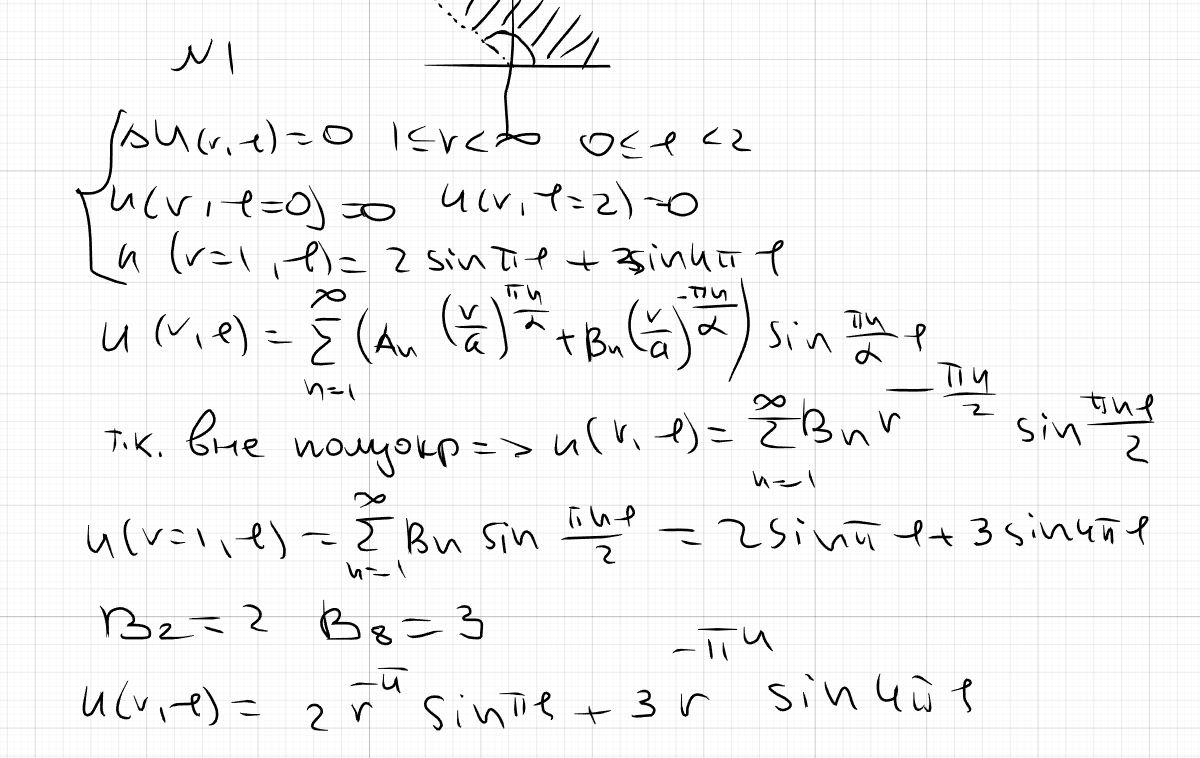 N1
{ Δu(r,φ)=0 1≤r<∞ 0≤φ<2
u(r,φ=0)=0 u(r,φ=2)=0
u(r=1,φ)=2 sin πφ + 3sin4π φ
u(r,φ)=∑_{n=1}^{∞}(A_n (r/a)^{πn/α}+B_n(r/a)^{-πn/α}) sin πn/α φ
т.к. вне полуокр => u(r,φ)=∑_{n=1}^{∞} B_n r^{-πn/2} sin πnφ/2
u(r=1,φ)=∑_{n=1}^{∞} B_n sin πnφ/2 = 2sinπ φ+3sin4πφ
B_2=2 B_8=3
u(r,φ)= 2 r^{-π} sinπφ+3 r^{-π4} sin4πφ